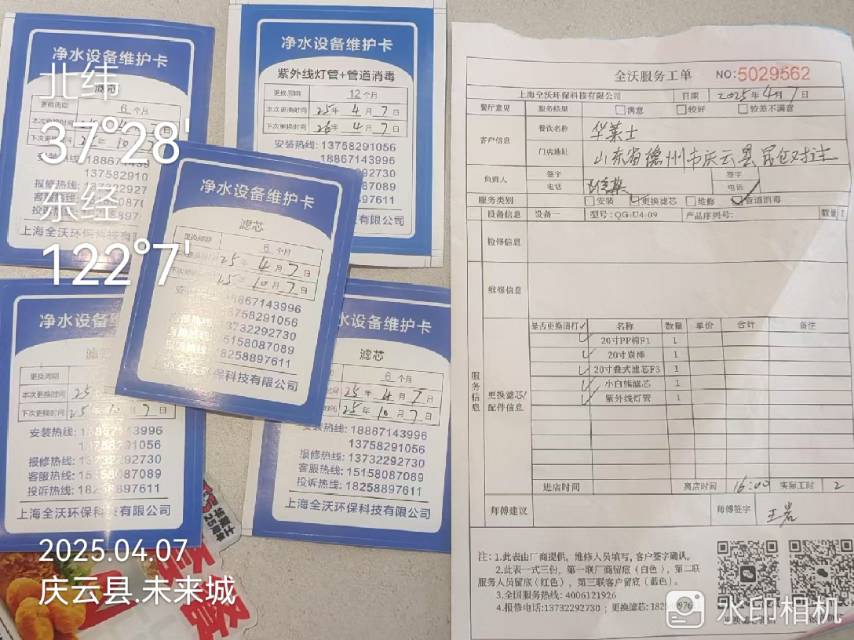 净水设备维护卡
滤芯
更换周期 6个月
安装热线: 18867143996
上海全沃环
净水设备维护卡
紫外线灯管+管道消毒
更换周期 12个月
本次更换时间 25年4月7日
下次更换时间 26年4月7日
安装热线: 13758291056
18867143996
有限公司
净水设备维护卡
滤芯
更换周期 6个月
25年4月7日
25年10月7日
18867143996
13758291056
13732292730
15158087089
18258897611
上海全沃环保科技有限公司
净水设备维护卡
滤芯
更换周期
本次更换时间 25年
下次更换时间 25年10月7日
安装热线: 18867143996
13758291056
报修热线: 13732292730
客服热线: 15158087089
投诉热线: 18258897611
上海全沃环保科技有限公司
净水设备维护卡
滤芯
6个月
25年4月7日
25年10月7日
安装热线: 18867143996
13758291056
报修热线: 13732292730
客服热线: 15158087089
投诉热线: 18258897611
上海全沃环保科技有限公司
北纬
37°28'
东经
122°7'
2025.04.07
庆云县.未来城
全沃服务工单 NO:5029562
上海全沃环保科技有限公司 日期 2025年4月7日
餐厅意见 服务结果 满意 较好 较差不满意
客户信息 餐饮名称 华莱士
门店地址 山东省德州市庆云县
负责人 签字 签字
电话 电话
服务类别 安装 更换滤芯 维修 管道消毒
设备信息 设备一 型号: QG-U4-09 产品序列号: 数量
检修信息
维修信息
服务信息
更换滤芯/配件信息
是否更换请打✓ 名称 数量 单价 合计 备注
✓ 20寸PP棉F1 1
✓ 20寸炭棒 1
✓ 20寸叠式滤芯F3 1
✓ 小白炼滤芯 1
✓ 紫外线灯管 1
进店时间 离店时间 16:00 实际工时 2
师傅建议 师傅签字 王岩
注: 1.此表由厂商提供, 维修人员填写, 客户签字确认。
2.此表一式三份, 第一联厂商留底(白色), 第二联
服务人员留底(红色), 第三联客户留底(蓝色)。
3.全国服务热线: 4006121926
4.报修电话:13732292730; 更换滤芯:
水印相机